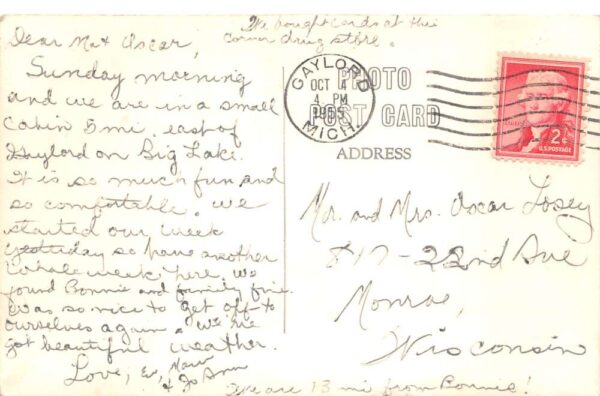 We bought cards at this
corner drug store.
Dear Ma & Oscar,
Sunday morning
and we are in a small
cabin 5 mi. east of
Gaylord on Big Lake.
It is so much fun and
so comfortable. We
started our week
yesterday so have another
whole week here. We
found Bonnie and family fine.
Was so nice to get off to
ourselves again. We've
got beautiful weather.
Love, Ev,
& Jo Ann
We are 13 mi from Bonnie!
GAYLORD
OCT 4
4 PM
MICH.
PHOTO
POST CARD
ADDRESS
2¢
U.S. POSTAGE
Mr. and Mrs. Oscar Losey
817-22nd Ave
Monroe,
Wisconsin